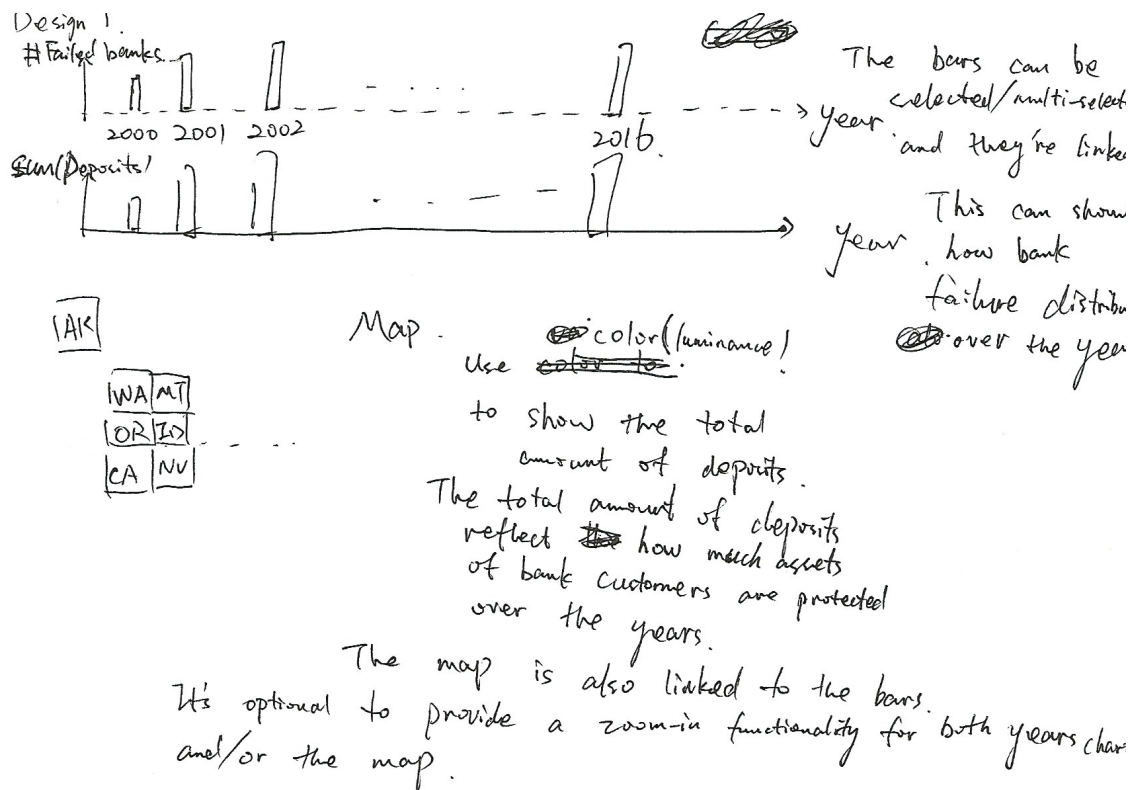 Design 1.
#Failed banks
2000 2001 2002 2016.
year.
The bars can be
selected/multi-select
and they're linke
sum(Deposits)
year.
This can show
how bank
failure distribu
over the year
AK
WA MT
OR ID
CA NV
Map.
Use color(luminance)
to show the total
amount of deposits.
The total amount of deposits
reflect how much assets
of bank customers are protected
over the years.
The map is also linked to the bars.
It's optional to provide a zoom-in functionality for both years char
and/or the map.